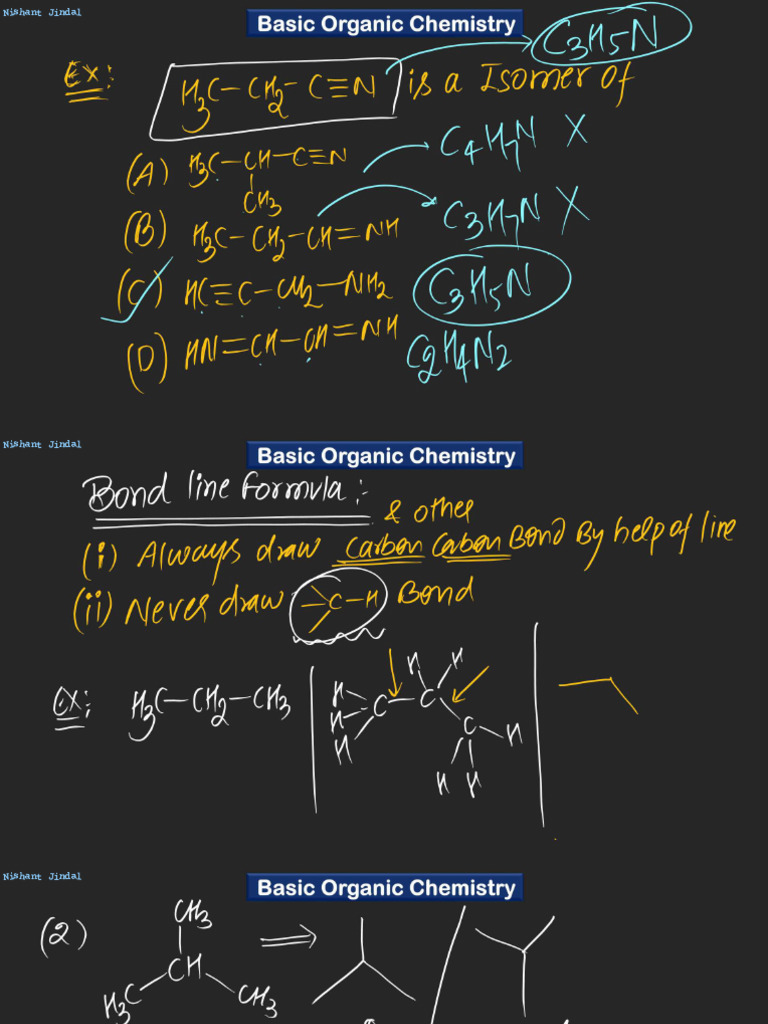 Nishant Jindal
Basic Organic Chemistry
C3H5N
Ex: H3C-CH2-C≡N is a Isomer of
(A) H3C-CH-C≡N C4H7N X
CH3
(B) H3C-CH2-CH=NH C3H7N X
(C) HC≡C-CH2-NH2 C3H5N
(D) HN=CH-CH=NH C2H4N2
Nishant Jindal
Basic Organic Chemistry
Bond line formula:-
& other
(i) Always draw Carbon Carbon Bond By help of line
(ii) Never draw -C-H Bond
Ex: H3C-CH2-CH3
H H
H C C
H C H
H
H H
Nishant Jindal
Basic Organic Chemistry
(2) CH3
CH
H3C CH3